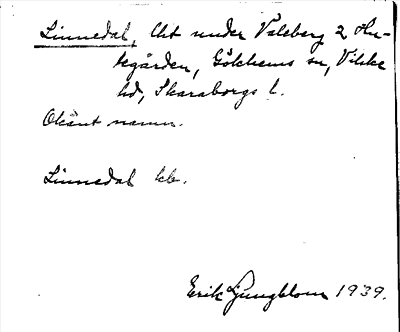 Linnedal, lht under Valeberg 2 Hu-
tegården, Gökhems sn, Vilske
hd, Skaraborgs l.
Okänt namn.
Linnedal kb.
Erik Ljungblom 1939.